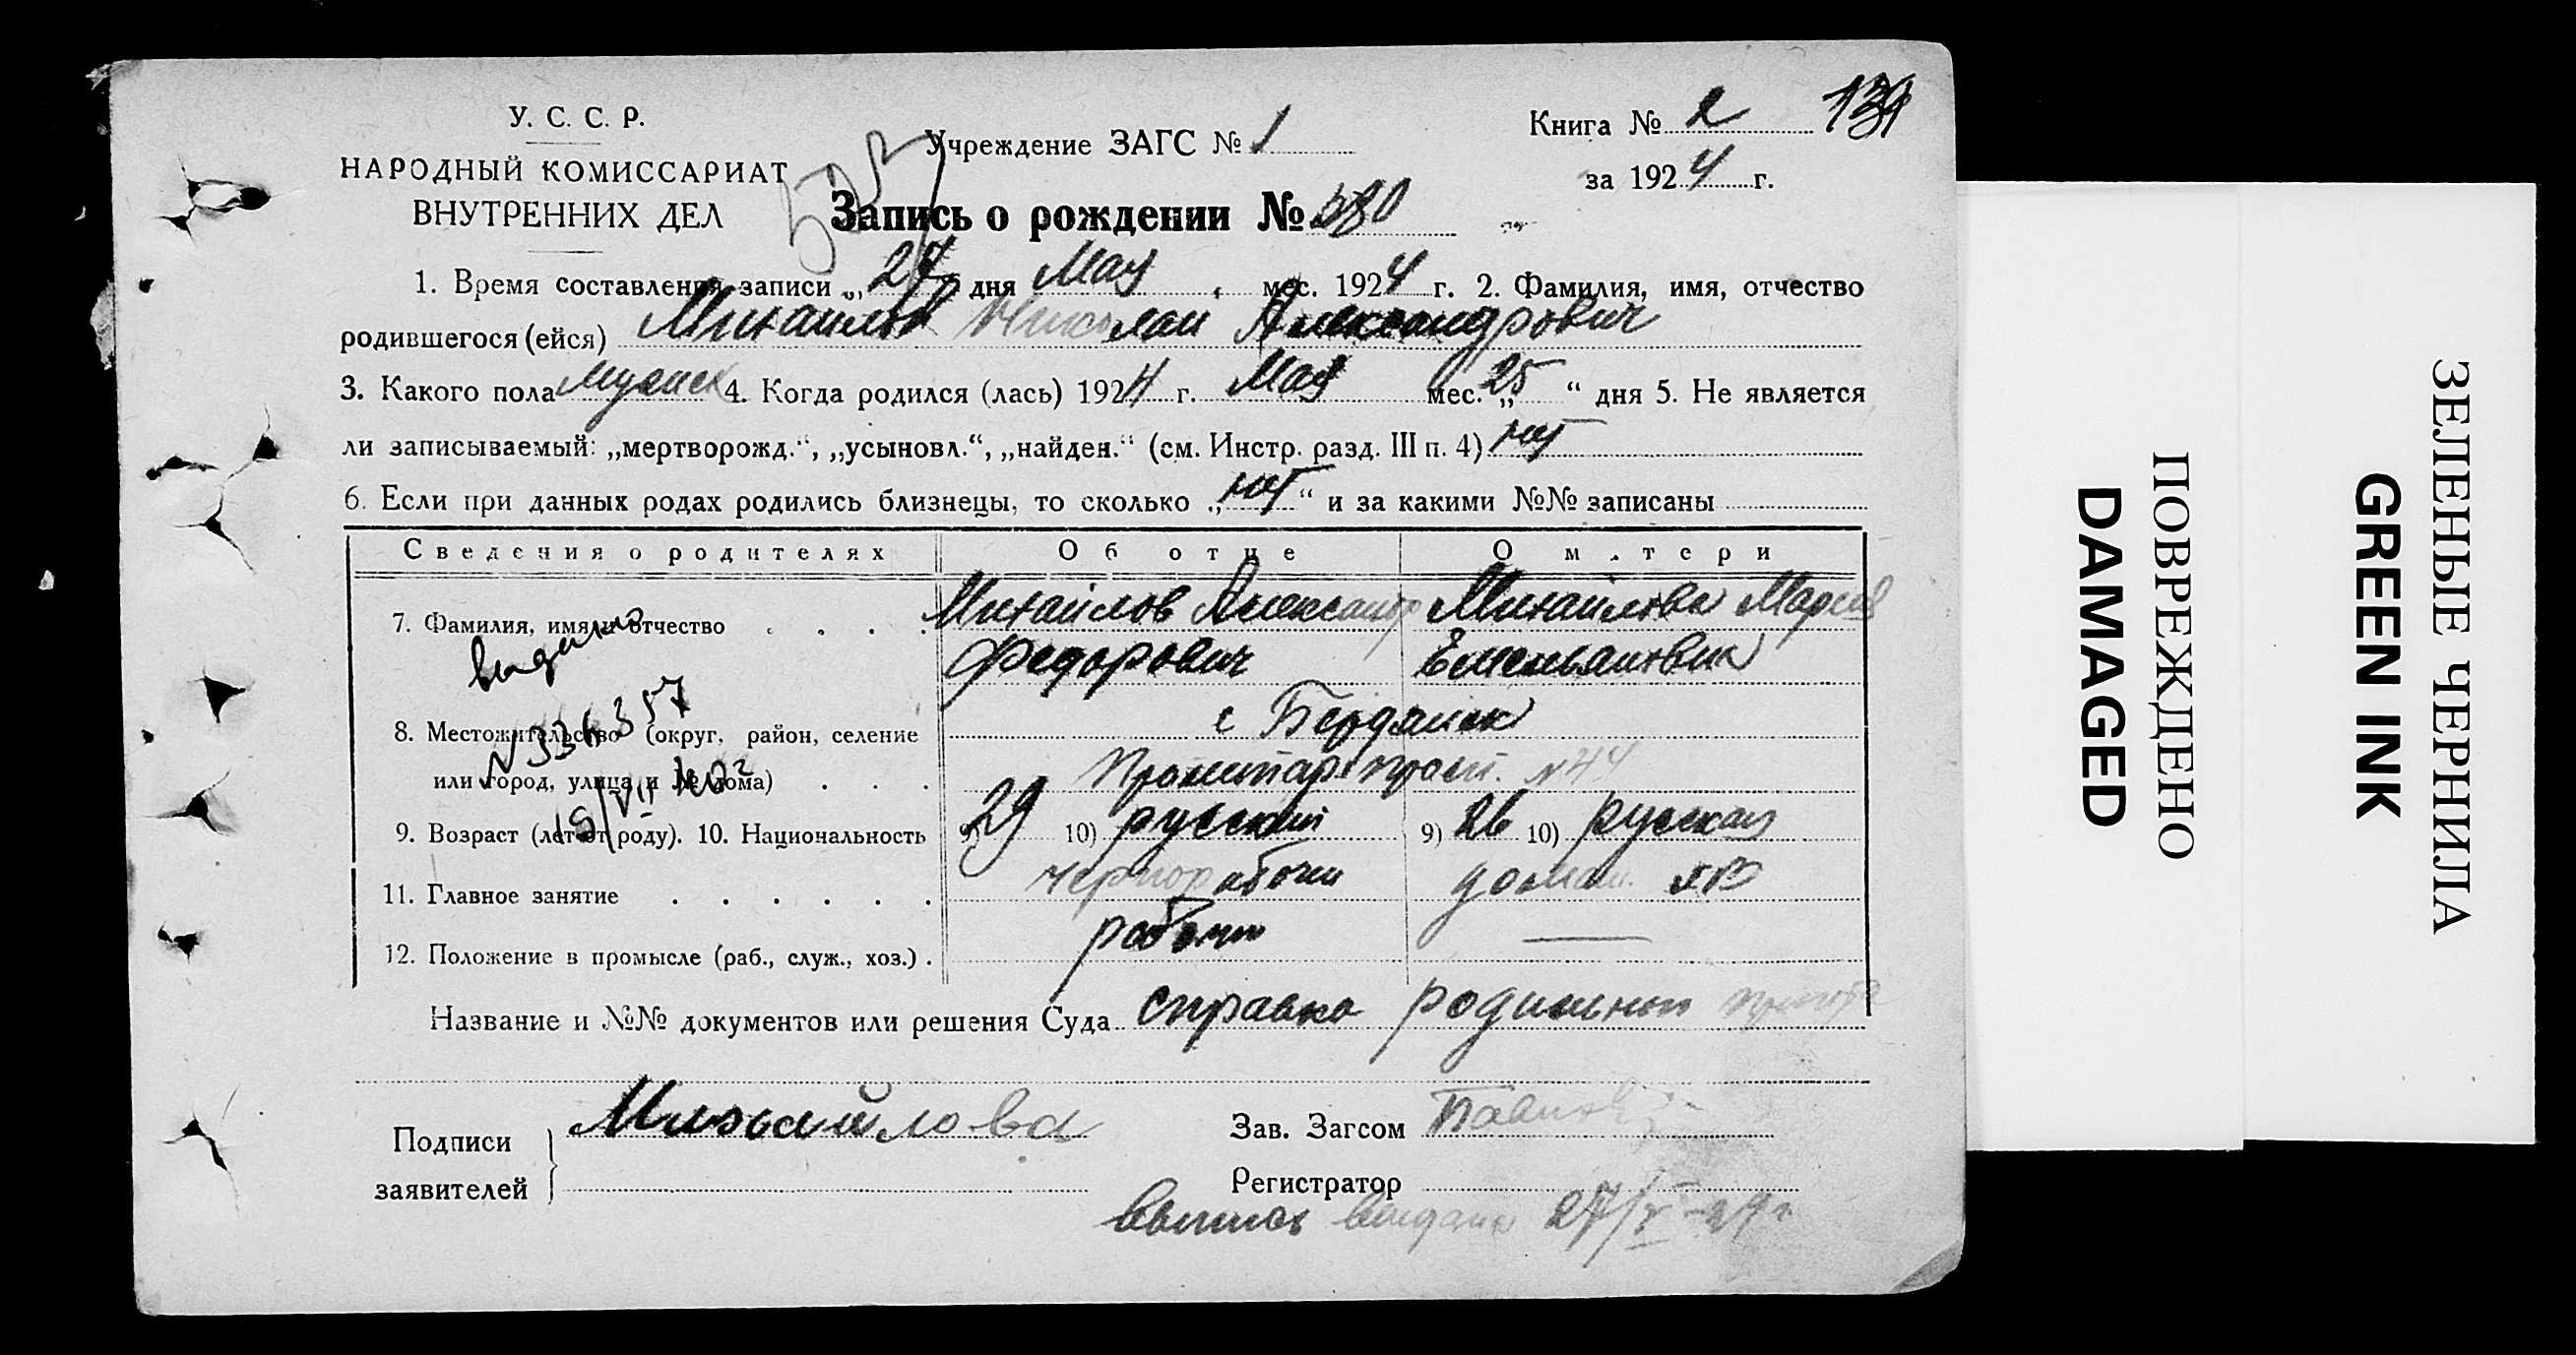 У. С. С. Р.
НАРОДНЫЙ КОМИССАРИАТ
ВНУТРЕННИХ ДЕЛ
Учреждение ЗАГС № 1
Книга № 2
за 1924 г.
Запись о рождении №
1. Время составления записи „27 дня Мая мес. 1924 г. 2. Фамилия, имя, отчество
родившегося (ейся) Михайлов Николай Александрович
3. Какого пола мужск 4. Когда родился (лась) 1924 г. Мая мес. „25 “ дня 5. Не является
ли записываемый: „мертворожд.“, „усыновл.“, „найден.“ (см. Инстр. разд. III п. 4) нет
6. Если при данных родах родились близнецы, то сколько „нет“ и за какими №№ записаны
Сведения о родителях Об отце О м.тери
7. Фамилия, имя и отчество Михайлов Александр Михайлова Мария
Федорович Емельяновна
выдано
8. Местожительство (округ, район, селение г Бердянск
N 336357
или город, улица и № дома) Пролетар. просп. N 44
15/VII
9. Возраст (лет от роду). 10. Национальность 9) 29 10) русский 9) 26 10) русская
11. Главное занятие чернорабочий домаш. хоз
12. Положение в промысле (раб., служ., хоз.) рабочий —
Название и №№ документов или решения Суда справка родильного приюта
Подписи
заявителей
Михайлова
Зав. Загсом
Регистратор
Выпись выдана 27/V-29 г
ПОВРЕЖДЕНО
DAMAGED
ЗЕЛЕНЫЕ ЧЕРНИЛА
GREEN INK